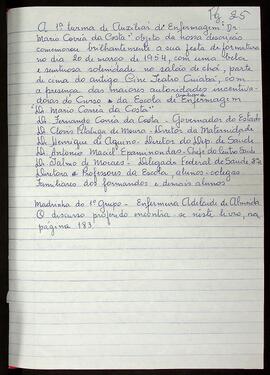 Pg. 85
A 1ª turma de Auxiliar de Enfermagem "Dr.
Mario Corrêa da Costa" objeto da nossa descrição
comemorou brilhantemente a sua festa de formatura
no dia 20 de março de 1954, com uma bela
e suntuosa solenidade no salão de chá, parte
de cima do antigo Cine Teatro Cuiabá, com
a presença das maiores autoridades incentiva-
doras do Curso da Escola de Enfermagem
Dr. Mario Corrêa da Costa"
Dr. Fernando Corrêa da Costa - Governador do Estado
Dr. Clovis Pitaluga de Moura - Diretor da Maternidade
Dr. Henrique de Aquino - Diretor do Dep. de Saúde
Dr. Antonio Maciel Epaminondas - Chefe do Centro Saúde
Dr. Jalmo de Moraes - Delegado Federal de Saúde
Diretora Professores da Escola, alunos-colegas
Familiares dos formandos e demais alunos
Madrinha do 1º grupo - Enfermeira Adelaide de Almeida
O discurso proferido encontra-se neste livro, na
página 183